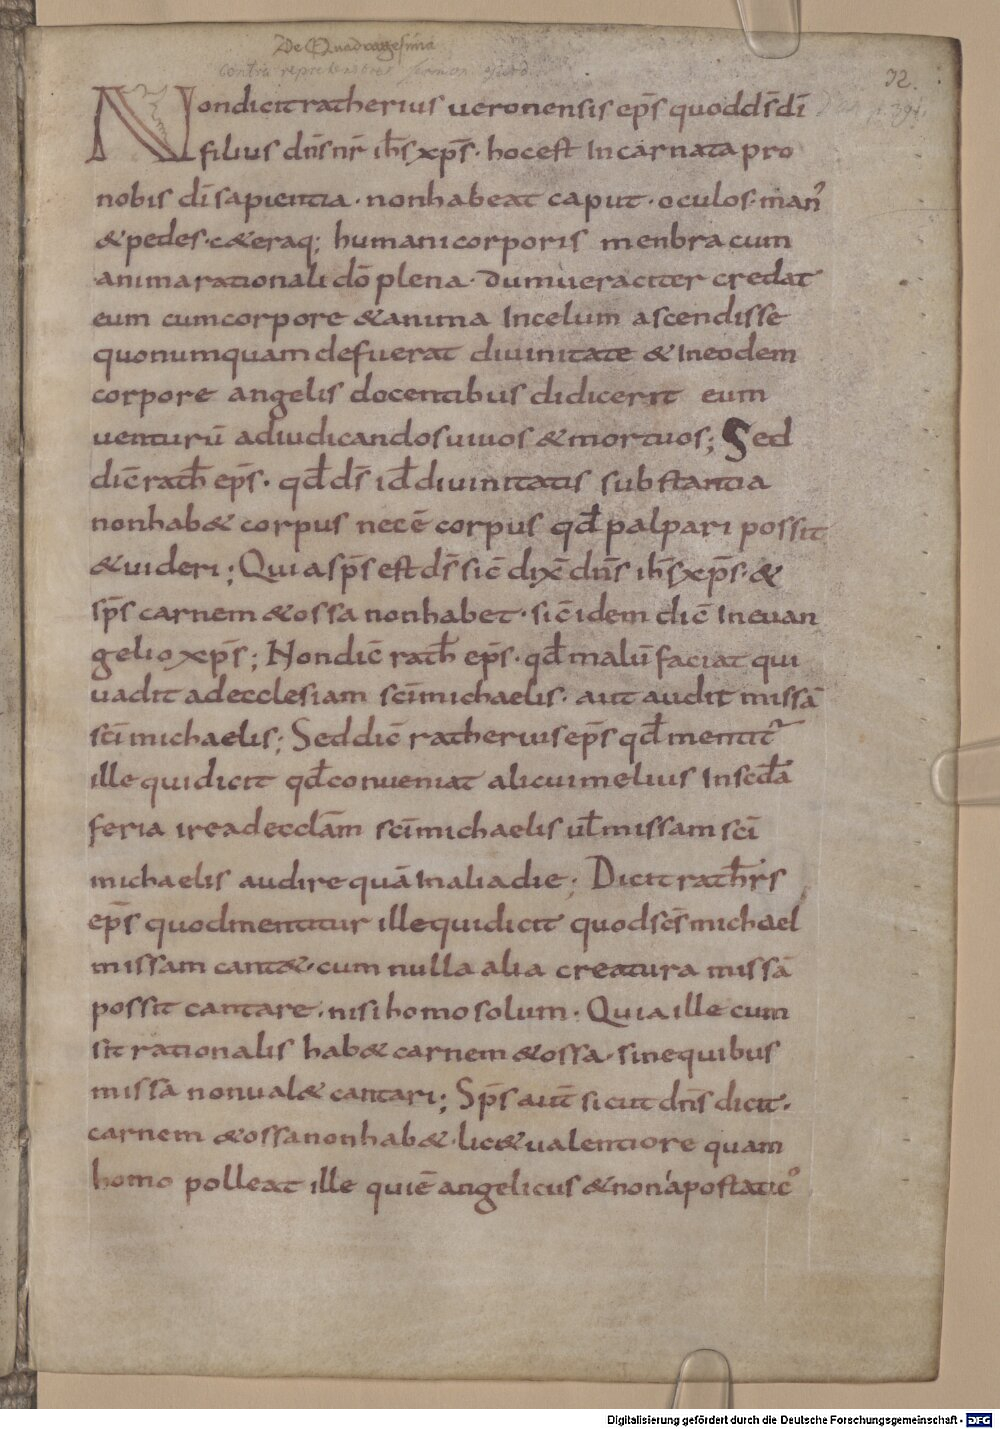 De Quadragesima
Contra reprehensores sermon
32.
Nondicit ratherius ueronensis ep̄s quod d̄s dī
filius dn̄s nr̄ ih̄s xp̄s · hoc est Incarnata pro
nobis dī sapientia · non habeat caput · oculos · man᾿
& pedes · c&eraq; humani corporis menbra cum
anima rationali dō plena · dum ueraciter credat
eum cum corpore & anima In celum ascendisse
quo numquam defuerat diuinitate & In eodem
corpore angelis docentibus didicerit eum
uenturū ad iudicandos uiuos & mortuos; Sed
dic̄ rath̄ ep̄s · qd̄ d̄s id̄ diuinitatis substantia
non hab& corpus nec ē corpus qd̄ palpari possit
& uideri; Quia sp̄s est d̄s sic̄ dix̄ dn̄s ih̄s xp̄s · &
sp̄s carnem & ossa non habet · sic̄ idem dic̄ In euan
gelio xp̄s; Non dic̄ rath̄ ep̄s · qd̄ malū faciat qui
uadit ad ecclesiam scī michaelis · aut audit missā
scī michaelis; Sed dic̄ ratherius ep̄s qd̄ mentit᷑
ille qui dicit qd̄ conueniat alicui melius In scd̄a
feria ire ad eccl̄am scī michaelis ul̄ missam scī
michaelis audire quā In alia die; Dicit rath̄r̄s
ep̄s quod mentitur ille qui dicit quod sc̄s michael
missam cant& · cum nulla alia creatura missā
possit cantare · nisi homo solum · Quia ille cum
sit rationalis hab& carnem & ossa · sine quibus
missā non ual& cantari; Sp̄s aut̄ sicut dn̄s dicit ·
carnem & ossa non hab& · lic& ualentiore quam
homo polleat ille qui ē angelicus & non apostatic᾿
Digitalisierung gefördert durch die Deutsche Forschungsgemeinschaft - DFG